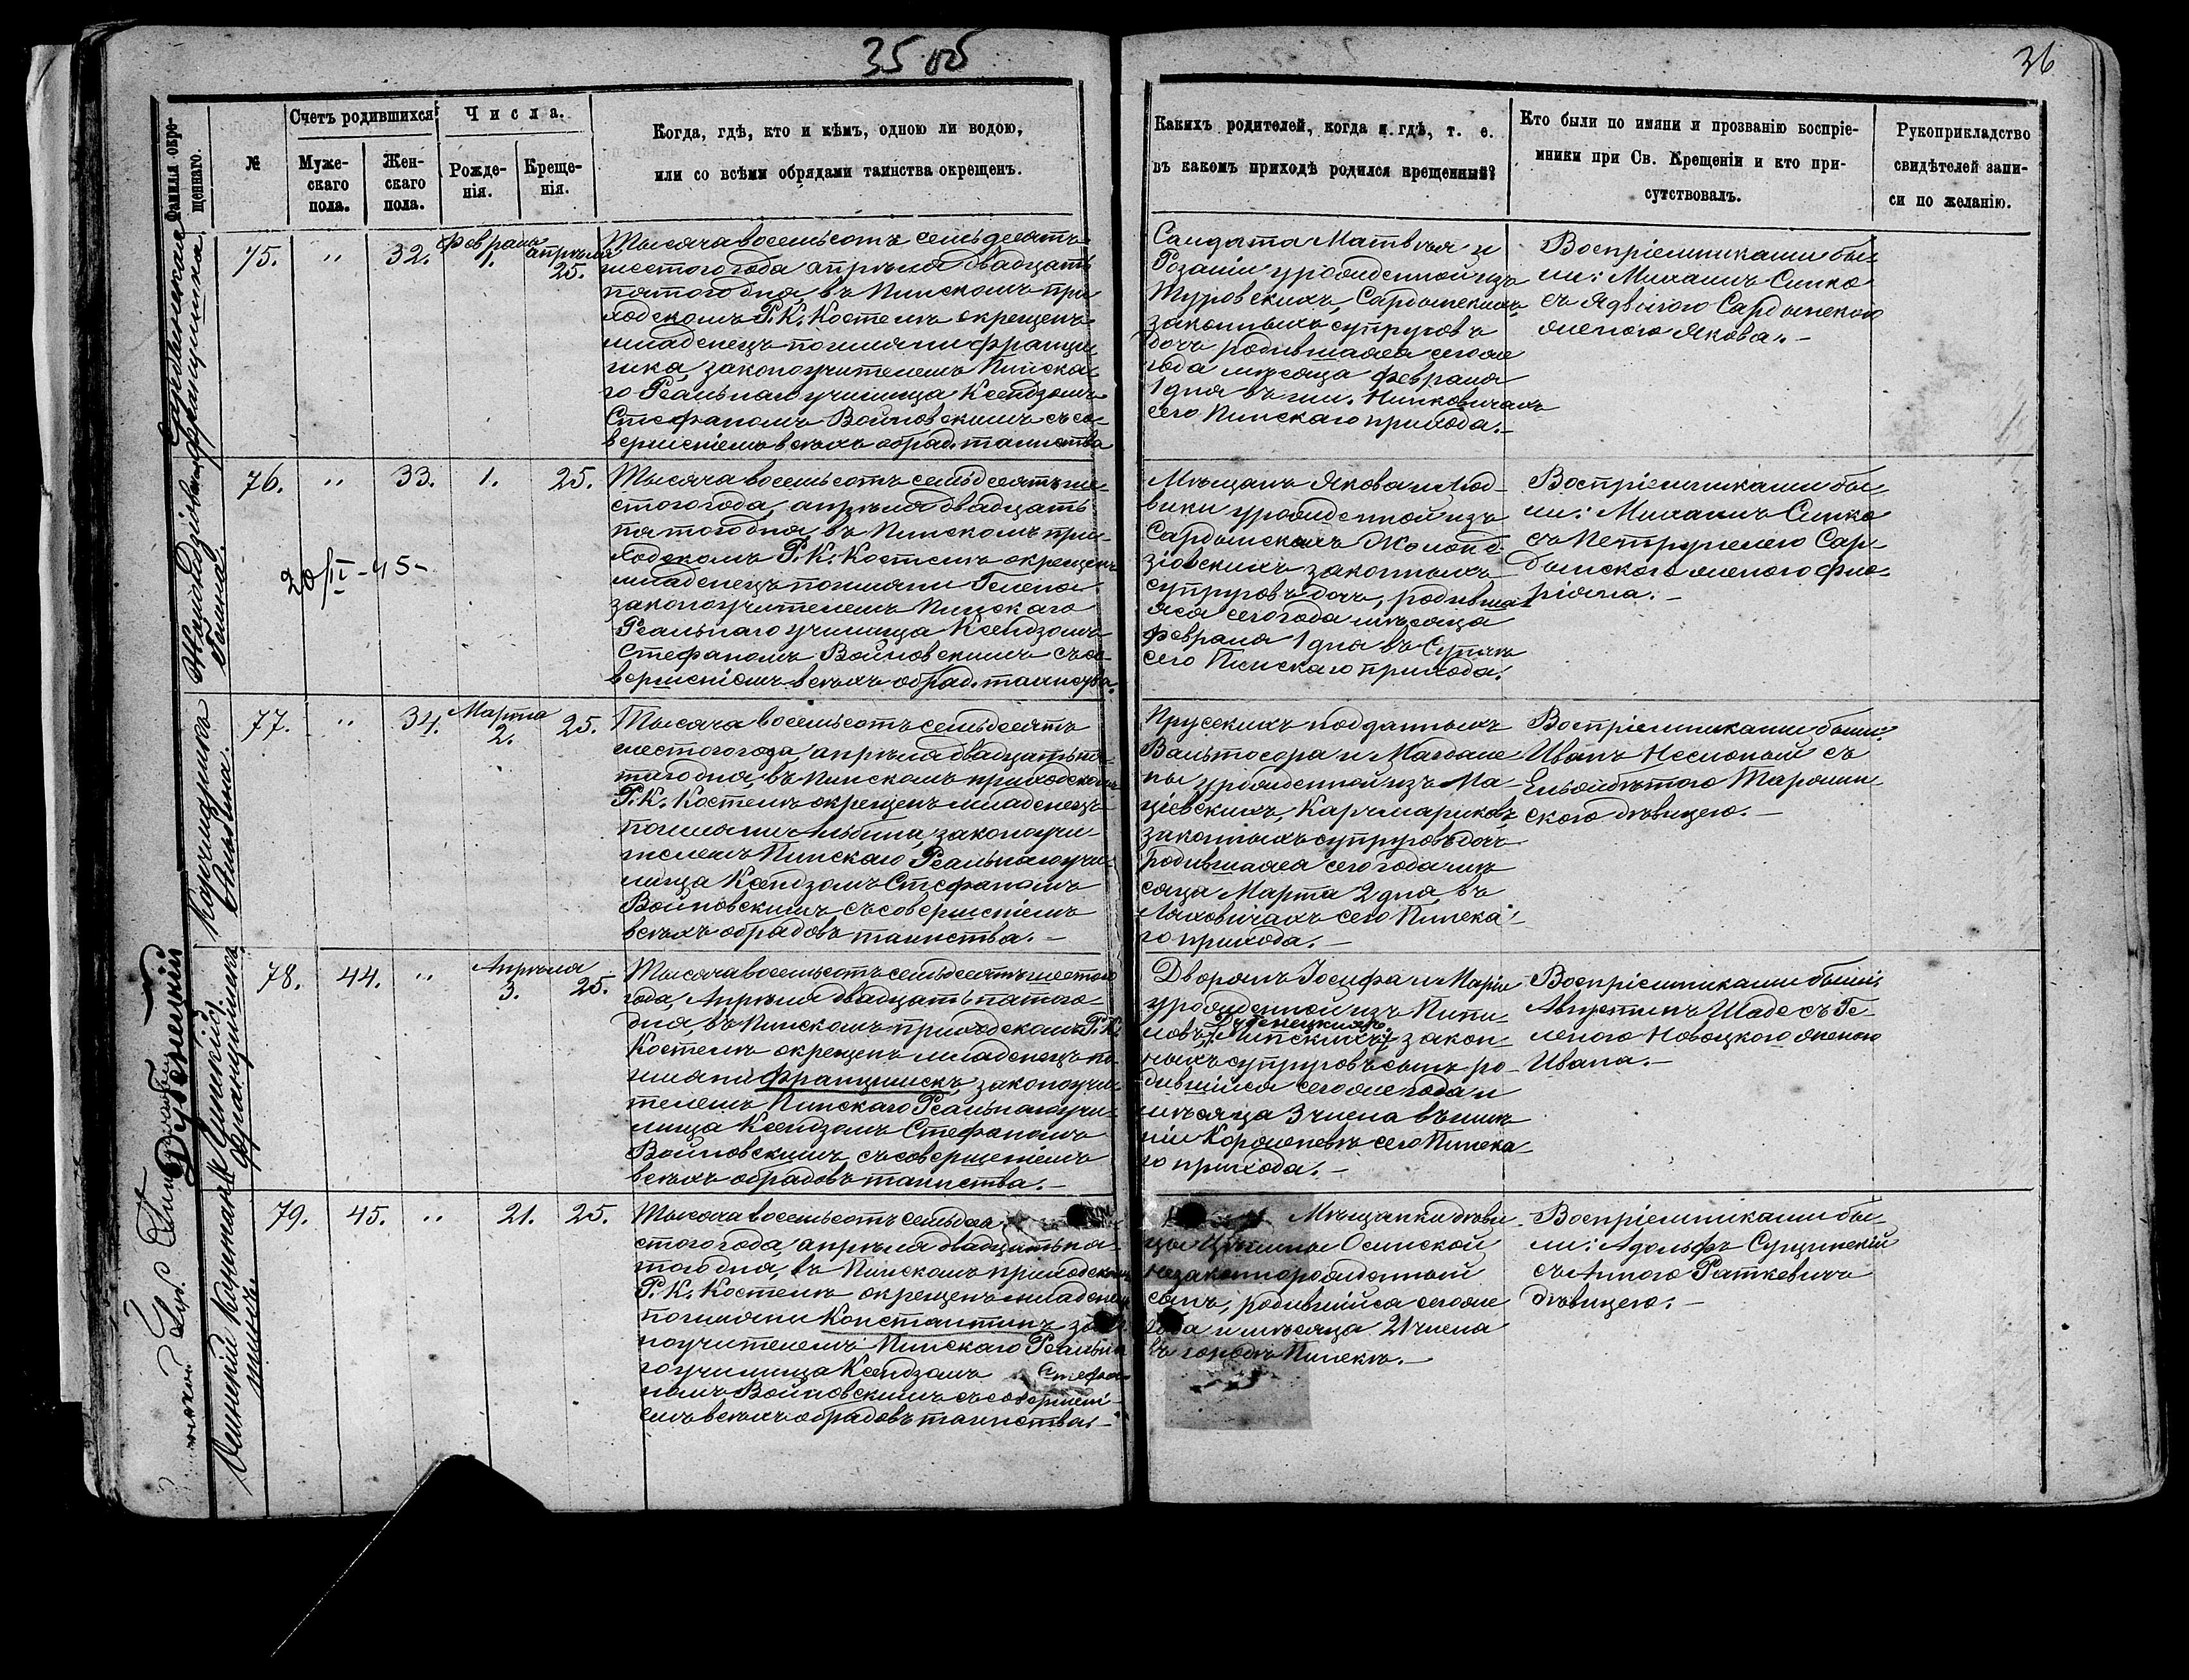 35 об
36
Фамилія окре-
щеннаго.
№
Счетъ родившихся
Муже-
скаго
пола.
Жен-
скаго
пола.
Числа.
Рожде-
нія.
Креще-
нія.
Когда, гдѣ, кто и кѣмъ, одною ли водою,
или со всѣми обрядами таинства окрещенъ.
Каких родителей, когда и гдѣ, т. е.
въ какомъ приходѣ родился крещенный?
Кто были по имяни и прозванію воспріе-
мники при Св. Крещеніи и кто при-
сутствовалъ.
Рукоприкладство
свидѣтелей запи-
си по желанію.
Франциишка.
75.
"
32.
Февраля
1.
апрѣля
25.
Тысяча восемьсотъ семьдесятъ
шестого года апрѣля двадцать
пятого дня, въ Пинскомъ при
ходскомъ Р. К. Костелѣ окрещенъ
младенецъ поимяни Францы
шка, законоучителемъ Пинска
го Реальнаго училища Ксендзомъ
Стефаномъ Войновскимъ съ со-
вершеніемъ всѣхъ обряд. таинства
Солдата Матвѣя и
Розаліи урожденной изъ
Туровскихъ, Сардынскихъ
законныхъ супруговъ
дочь родившаяся сегоже
года мѣсяца Февраля
1 дня въ им. Нинковичахъ
сего Пинскаго прихода.-
Воспріемниками бы-
ли: Михаилъ Синко
съ Ядвигою Сардынскою
женою Якова.-
Гелена.
76.
"
33.
1.
25.
20/II-45-
Тысяча восемьсотъ семьдесятъ ше-
стого года, апрѣля двадцать
пятого дня, въ Пинскомъ при-
ходскомъ Р. К. Костелѣ окрещенъ
младенецъ поимяни Гелена
законоучителемъ Пинскаго
Реальнаго училища Ксендзомъ
Стефаномъ Войновскимъ съ со
вершеніемъ всѣхъ обряд. таинства.
Мѣщанъ Якова и Люд-
вики урожденной изъ
Сардынскихъ Жолонд-
зіовскихъ законныхъ
супруговъ дочь, родивша
яся сего года мѣсяца
Февраля 1 дня въ Сунхъ
сего Пинскаго прихода.
Воспріемниками бы-
ли: Михаилъ Синко
съ Петрунелею Сар-
дынскою женою Фло-
ріана.-
Альбина.
77.
"
34.
Марта
2.
25.
Тысяча восемьсотъ семьдесятъ
шестого года апрѣля двадцать пя-
таго дня, въ Пинскомъ приходскомъ
Р. К. Костелѣ окрещенъ младенецъ
поимяни Альбина, законоучи
телемъ Пинскаго Реальнаго учи-
лища Ксендзомъ Стефаномъ
Войновскимъ съ совершеніемъ
всѣхъ обрядовъ таинства.-
Прусскихъ подданныхъ
Вальтосора и Магдале
ны урожденной изъ Ма-
ціевскихъ, Карчмариковъ,
законныхъ супруговъ дочь
родившаяся сего года мѣ
сяца Марта 2 дня, въ
Ляховичахъ сего Пинска-
го прихода.-
Воспріемниками были:
Иванъ Неслоный съ
Ельжбѣтою Тарашин-
скою дѣвицею.-
Дубенецкій
Францишекъ
78.
44.
"
Апрѣля
3.
25.
Тысяча восемьсотъ семьдесятъ шестого
года, Апрѣля двадцать пятого
дня, въ Пинскомъ приходскомъ Р. К.
Костелѣ окрещенъ младенецъ по
имяни Францишекъ, законоучи
телемъ Пинскаго Реальнаго учи-
лища Ксендзомъ Стефаномъ
Войновскимъ, съ совершеніемъ
всѣхъ обрядовъ таинства.-
Дворянъ Іосифа и Маріи
урожденной изъ Пипи-
Дубенецкихъ
новъ, закон-
ныхъ супруговъ сынъ ро-
дившійся сегоже года и
мѣсяца 3 числа въ имѣ
ніи Коржневѣ сего Пинска
го прихода.-
Воспріемниками были:
Августинъ Шаде съ Ге-
леною Новоцкою женою
Ивана.-
79.
45.
"
21.
25.
Тысяча восемьсотъ семьдеся
стого года, апрѣля двадцать пя-
того дня, въ Пинскомъ приходскомъ
Р. К. Костелѣ окрещенъ младенецъ
поимяни Константинъ, зако
ноучителемъ Пинскаго Реальна
го училища Ксендзомъ Стефа-
номъ Войновскимъ съ совершені-
емъ всѣхъ обрядовъ таинства.-
Мѣщанки дѣви
цы Осинской
незаконнорожденный
сынъ, родившійся сегоже
года и мѣсяца 21 числа
въ городѣ Пинскѣ.-
Воспріемниками бы-
ли: Адольфъ Сущинскій
съ Анною Раткевичъ
дѣвицею.-